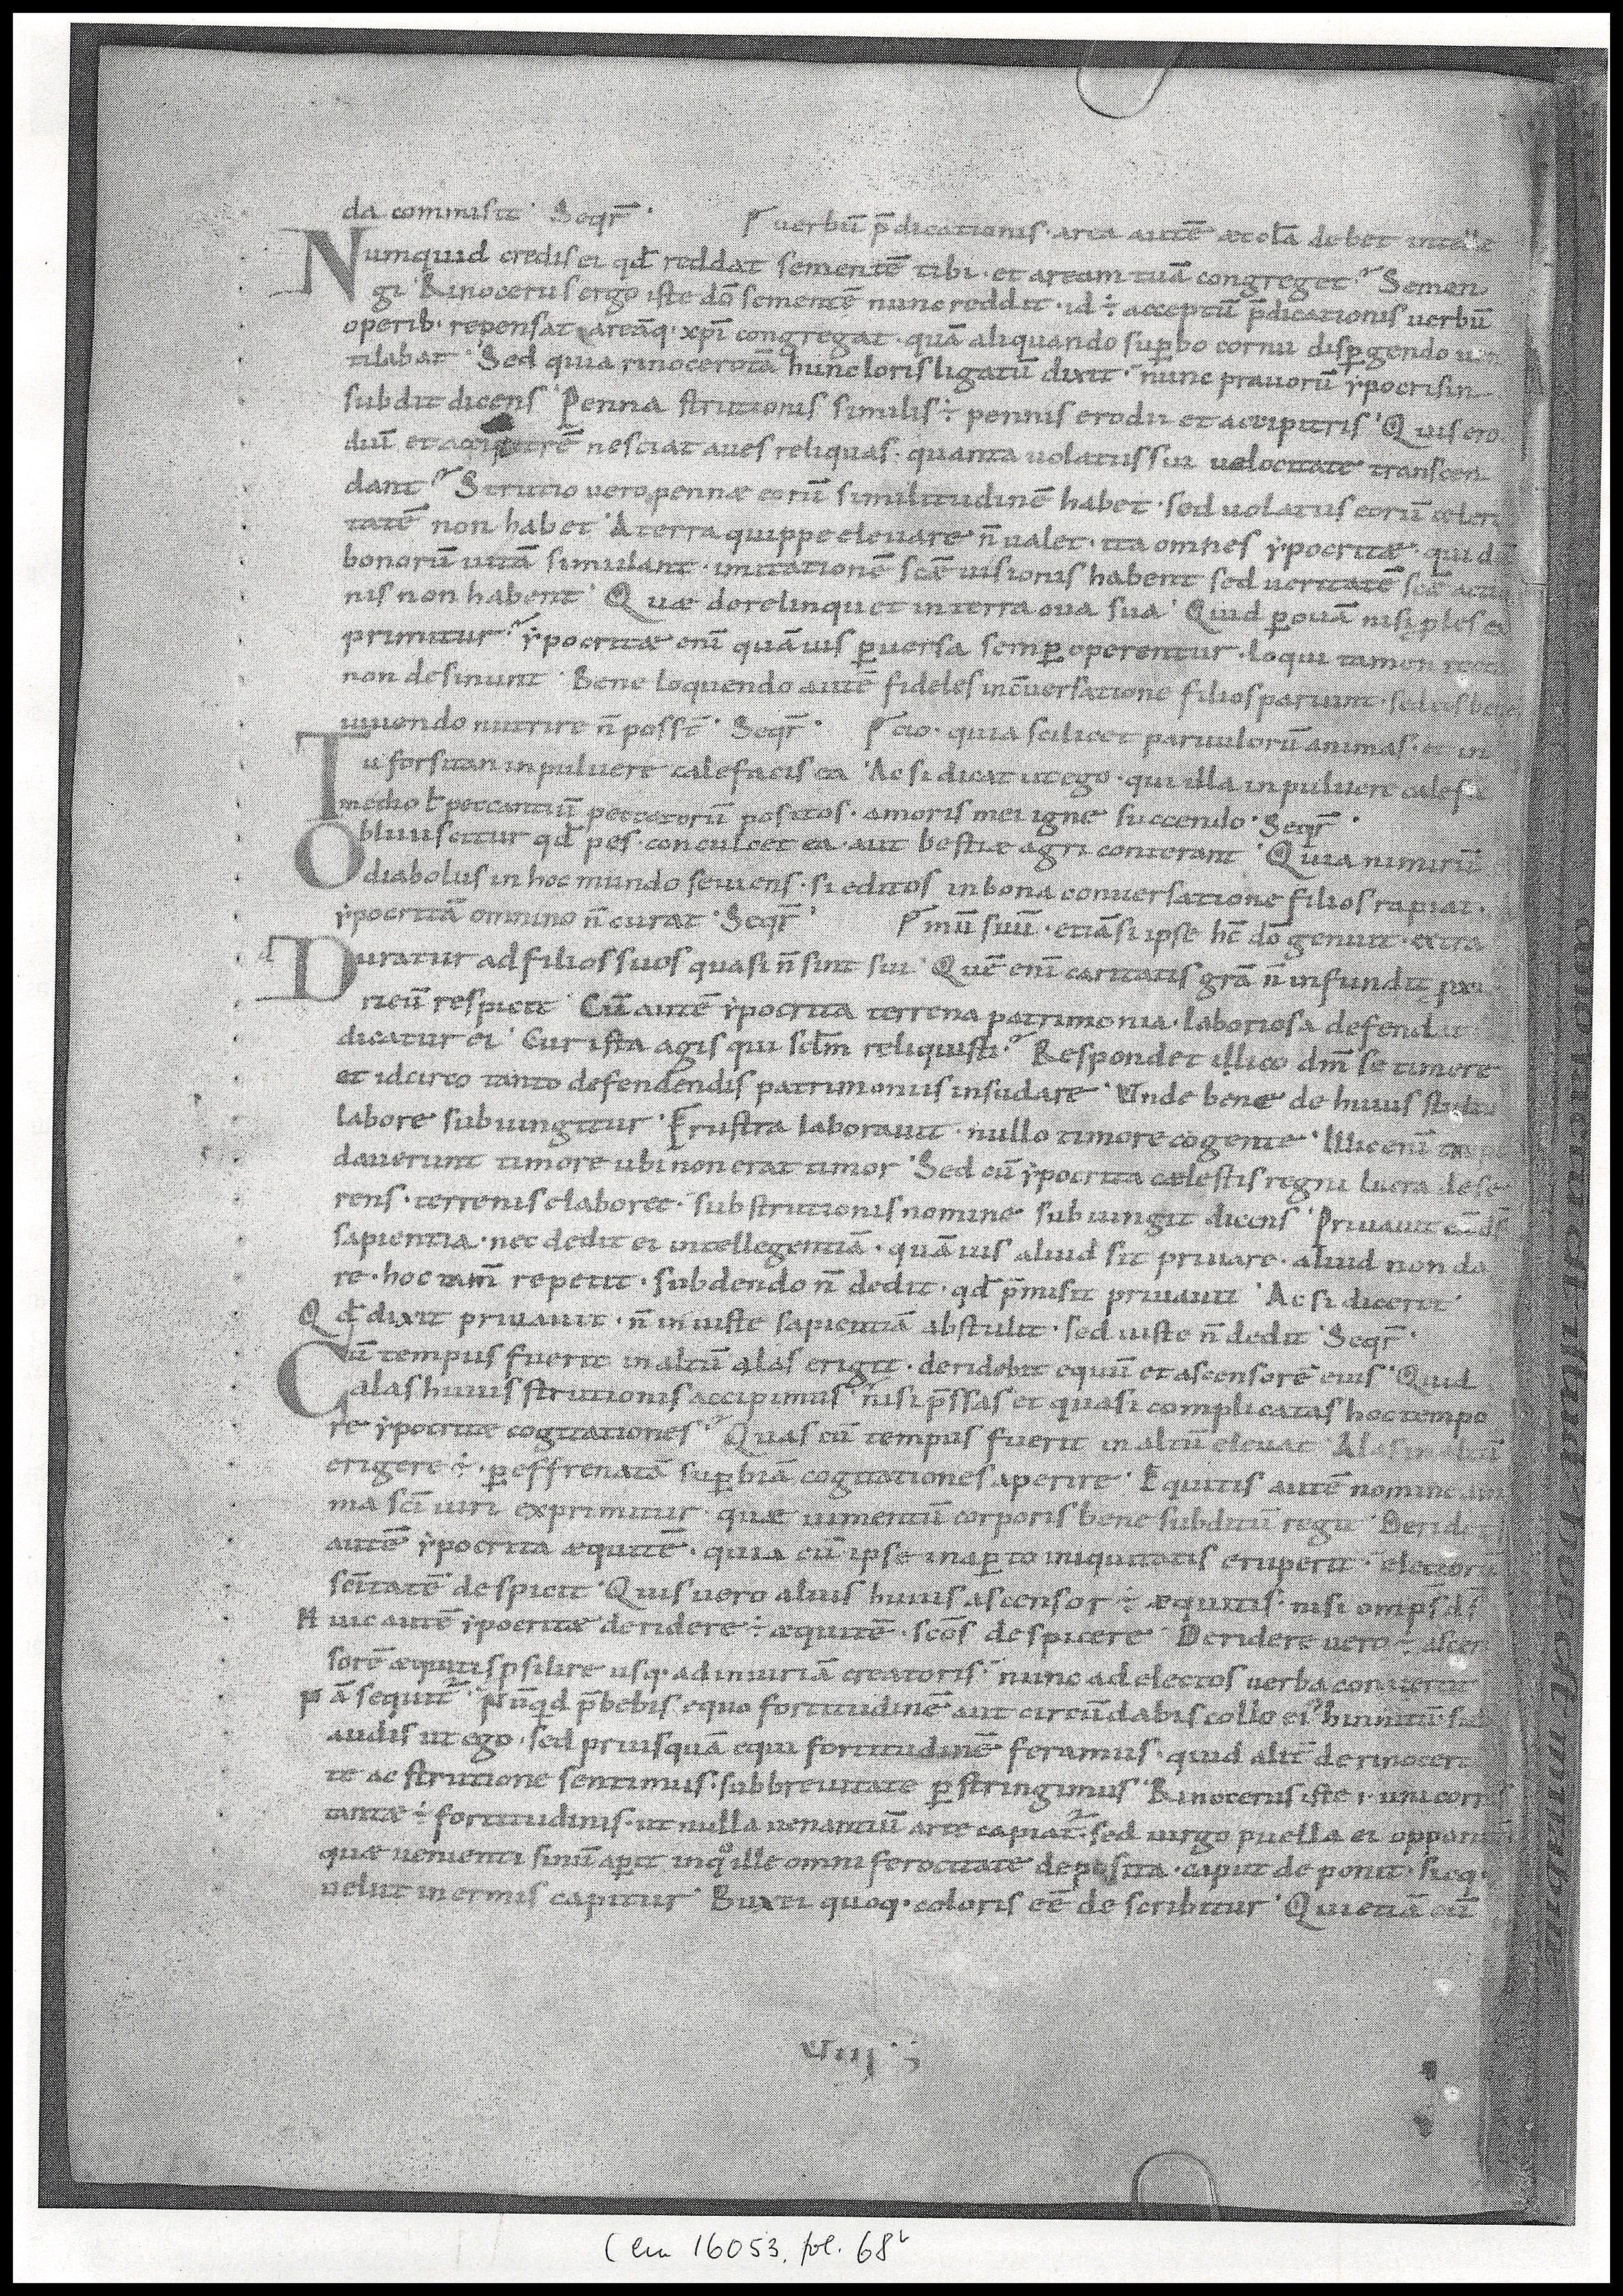 da commisit · Seqr̄ · uerbū p̄dicationis · area autē æccła debet intelle
Numquid credis ei qđ reddat sementē tibi · et aream tuā congreget · Semen
gi Rinocerus ergo iste dō sementē nunc reddit · id ÷ acceptū p̄dicationis uerbū
operib· repensat areāq· xp̄i congregat · quā aliquando sup̱bo cornu disp̱gendo uen
tilabat · Sed quia rinocerotā hunc loris ligatū dixit · nunc prauorū ẏpocrisin
subdit dicens Penna strutionis similis ÷ pennis erodii et accipitris · Quis ero
diū et accipitrē nesciat aues reliquas · quanta uolatus sui uelocitate transcen
dant · Strutio uero pennæ eorū similitudinē habet · sed uolatus eorū celeri
tatē non habet · A terra quippe eleuare n̄ ualet · ita omnes ẏpocritæ · qui dū
bonorū uitā simulant · imitationē scē uisionis habent sed ueritatē scē actio
nis non habent · Quæ derelinquet in terra oua sua · Quid p̱ ouā nisi ples ex
primitur · ẏpocritæ enī quāuis p̱uersa semp̱ operentur · loqui tamen recta
non desinunt · Bene loquendo autē fideles in c̄uersatione filios pariunt · sed eos bene
uiuendo nutrire n̄ possē · Seqr̄ · cio · quia scilicet paruulorū animas · et in
Tu forsitan in puluere calefacis ea · Ac si dicat ut ego · qui illa in puluere calefa
medio ł peccantiū peccatorū positos · amoris mei igne succendo · Seqr̄ ·
Obliuiscitur qđ pes · conculcet ea · aut bestiæ agri conterant · Quia nimirū
diabolus in hoc mundo seuiens · si editos in bona conuersatione filios rapiat ·
ẏpocritā omnino n̄ curat · Seqr̄ · mū suū · etiā si ipse hc̄ dō genuit · extra
d Duratur ad filios suos quasi n̄ sint sui · Quē enī caritatis grā n̄ infundit proxi
ricū respicit · Cū autē ẏpocrita terrena patrimonia · laboriosa defendit
dicatur ei · Cur ista agis qui scłm reliquisti · Respondet illico dm̄ se timere
et idcirco tanto defendendis patrimoniis insudare · Unde bene de huius stulto
labore subiungitur · Frustra laborauit · nullo timore cogente · Illic enī trepi
dauerunt timore ubi non erat timor · Sed cū ẏpocrita cælestis regni lucra dese
rens · terrenis elaboret · sub strutionis nomine subiungit dicens · Priuauit eā ds̄
sapientia · nec dedit ei intellegentiā · quāuis aliud sit priuare · aliud non da
re · hoc tam̄ repetit · subdendo n̄ dedit · qđ p̄misit priuauit · Ac si dicerit ·
Qđ dixit priuauit · n̄ iniuste sapientiā abstulit · sed iuste n̄ dedit · Seqr̄ ·
Cū tempus fuerit in altū alas erigit · deridebit equū et ascensorē eius · Quid
alas huius strutionis accipimus nisi p̄ssas et quasi complicatas hoc tempo
re ẏpocritæ cogitationes · Quas cū tempus fuerit in altū eleuat · Alas in altū
erigere ÷ · p̱ effrenatā sup̱biā cogitationes aperire · Equitis autē nomine ani
ma scī uiri exprimitur · quæ iumentū corporis bene subditū regit · Deridet
autē ẏpocrita æquitē · quia cū ipse in ap̱to iniquitatis eruperit · electorū
scītatē despicit · Quis uero alius huius ascensor ÷ æquitis · nisi omps̄ ds̄
Huic autē ẏpocritæ deridere ÷ æquitē · scōs despicere · Deridere uero ÷ ascen
sorē æquitis p̱silire usq· ad iniuriā creatoris · nunc ad electos uerba conuertit
Nā sequit · Nūqđ p̄bebis equo fortitudinē aut circūdabis collo ei hinnitū · sub
audis ut ego · sed priusquā equi fortitudinē feramus · quid alit̄ de rinocero
te ac strutione sentimus · sub breuitate p̱stringimus · Rinocerus iste · i · unicornis
tantæ ÷ fortitudinis · ut nulla uenantiū arte capiat · sed uirgo puella ei opponitur
quæ uenienti sinū ap̱it inquo ille omni ferocitate deposita · caput deponit · sicq·
uelut inermis capitur · Buxei quoq· coloris eē describitur · Qui etiā cū
VIII ·
Clm 16053, fol. 68v